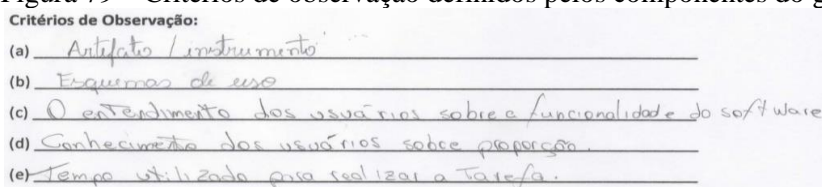 Figura 79 – Critérios de observação definidos pelos componentes do g
Critérios de Observação:
(a) Artefato / instrumento
(b) Esquemas de uso
(c) O entendimento dos usuários sobre a funcionalidade do software
(d) Conhecimento dos usuários sobre proporção.
(e) Tempo utilizado para realizar a Tarefa.